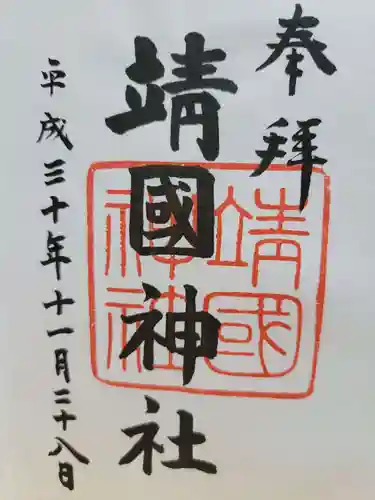 奉拝
靖國神社
靖國
神社
平成三十年十一月二十八日